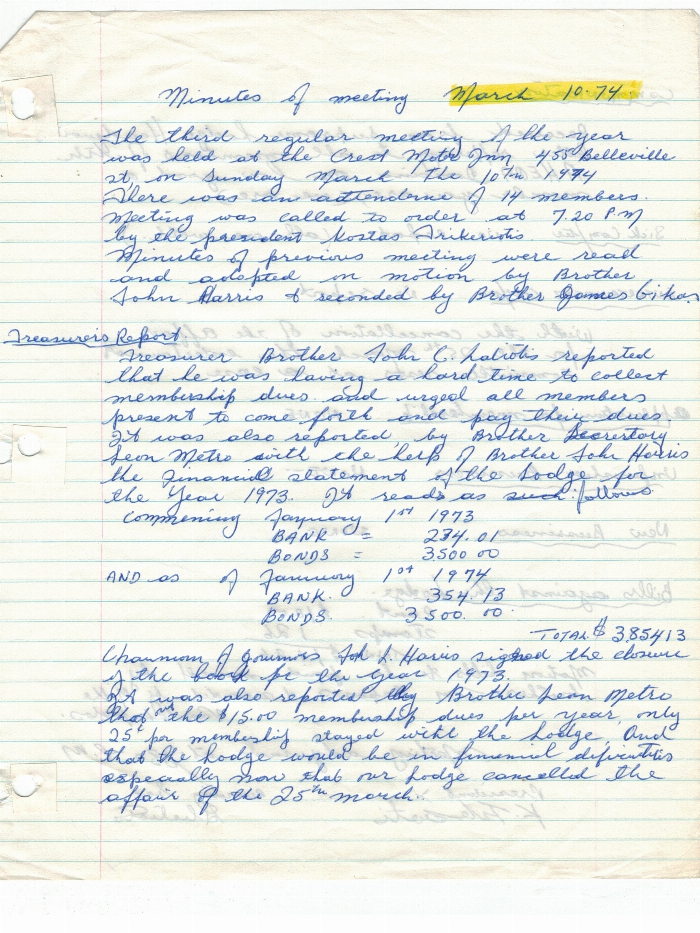 Minutes of meeting March 10-74.
The third regular meeting of the year
was held at the Crest Motor Inn 455 Belleville
st on Sunday March the 10th 1974
There was an attendence of 14 members.
Meeting was called to order at 7.20 P.M
by the president Kostas Trikeriotis
Minutes of previous meeting were read
and adopted on motion by Brother
John Harris & seconded by Brother James Gikas.
Treasurer's Report
Treasurer Brother John C. Laliotis reported
that he was having a hard time to collect
membership dues and urged all members
present to come forth and pay their dues
It was also reported by Brother Secretary
Leon Metro with the help of Brother John Harris
the Financial statement of the Lodge for
the Year 1973. It reads as such follows
Commening January 1st 1973
BANK = 274.01
BONDS = 3500 00
AND as of January 1st 1974
BANK. 354 13
BONDS. 3500. 00.
TOTAL $ 385413
Chairmon of governors Joh L. Harris signed the closure
of the book for the Year 1973
It was also reported by Brother Leon Metro
that out the $15.00 membership dues per year, only
25¢ per membership stayed with the Lodge. And
that the Lodge would be in financial dificulties
especially now that our Lodge cancelled the
affair of the 25th march.